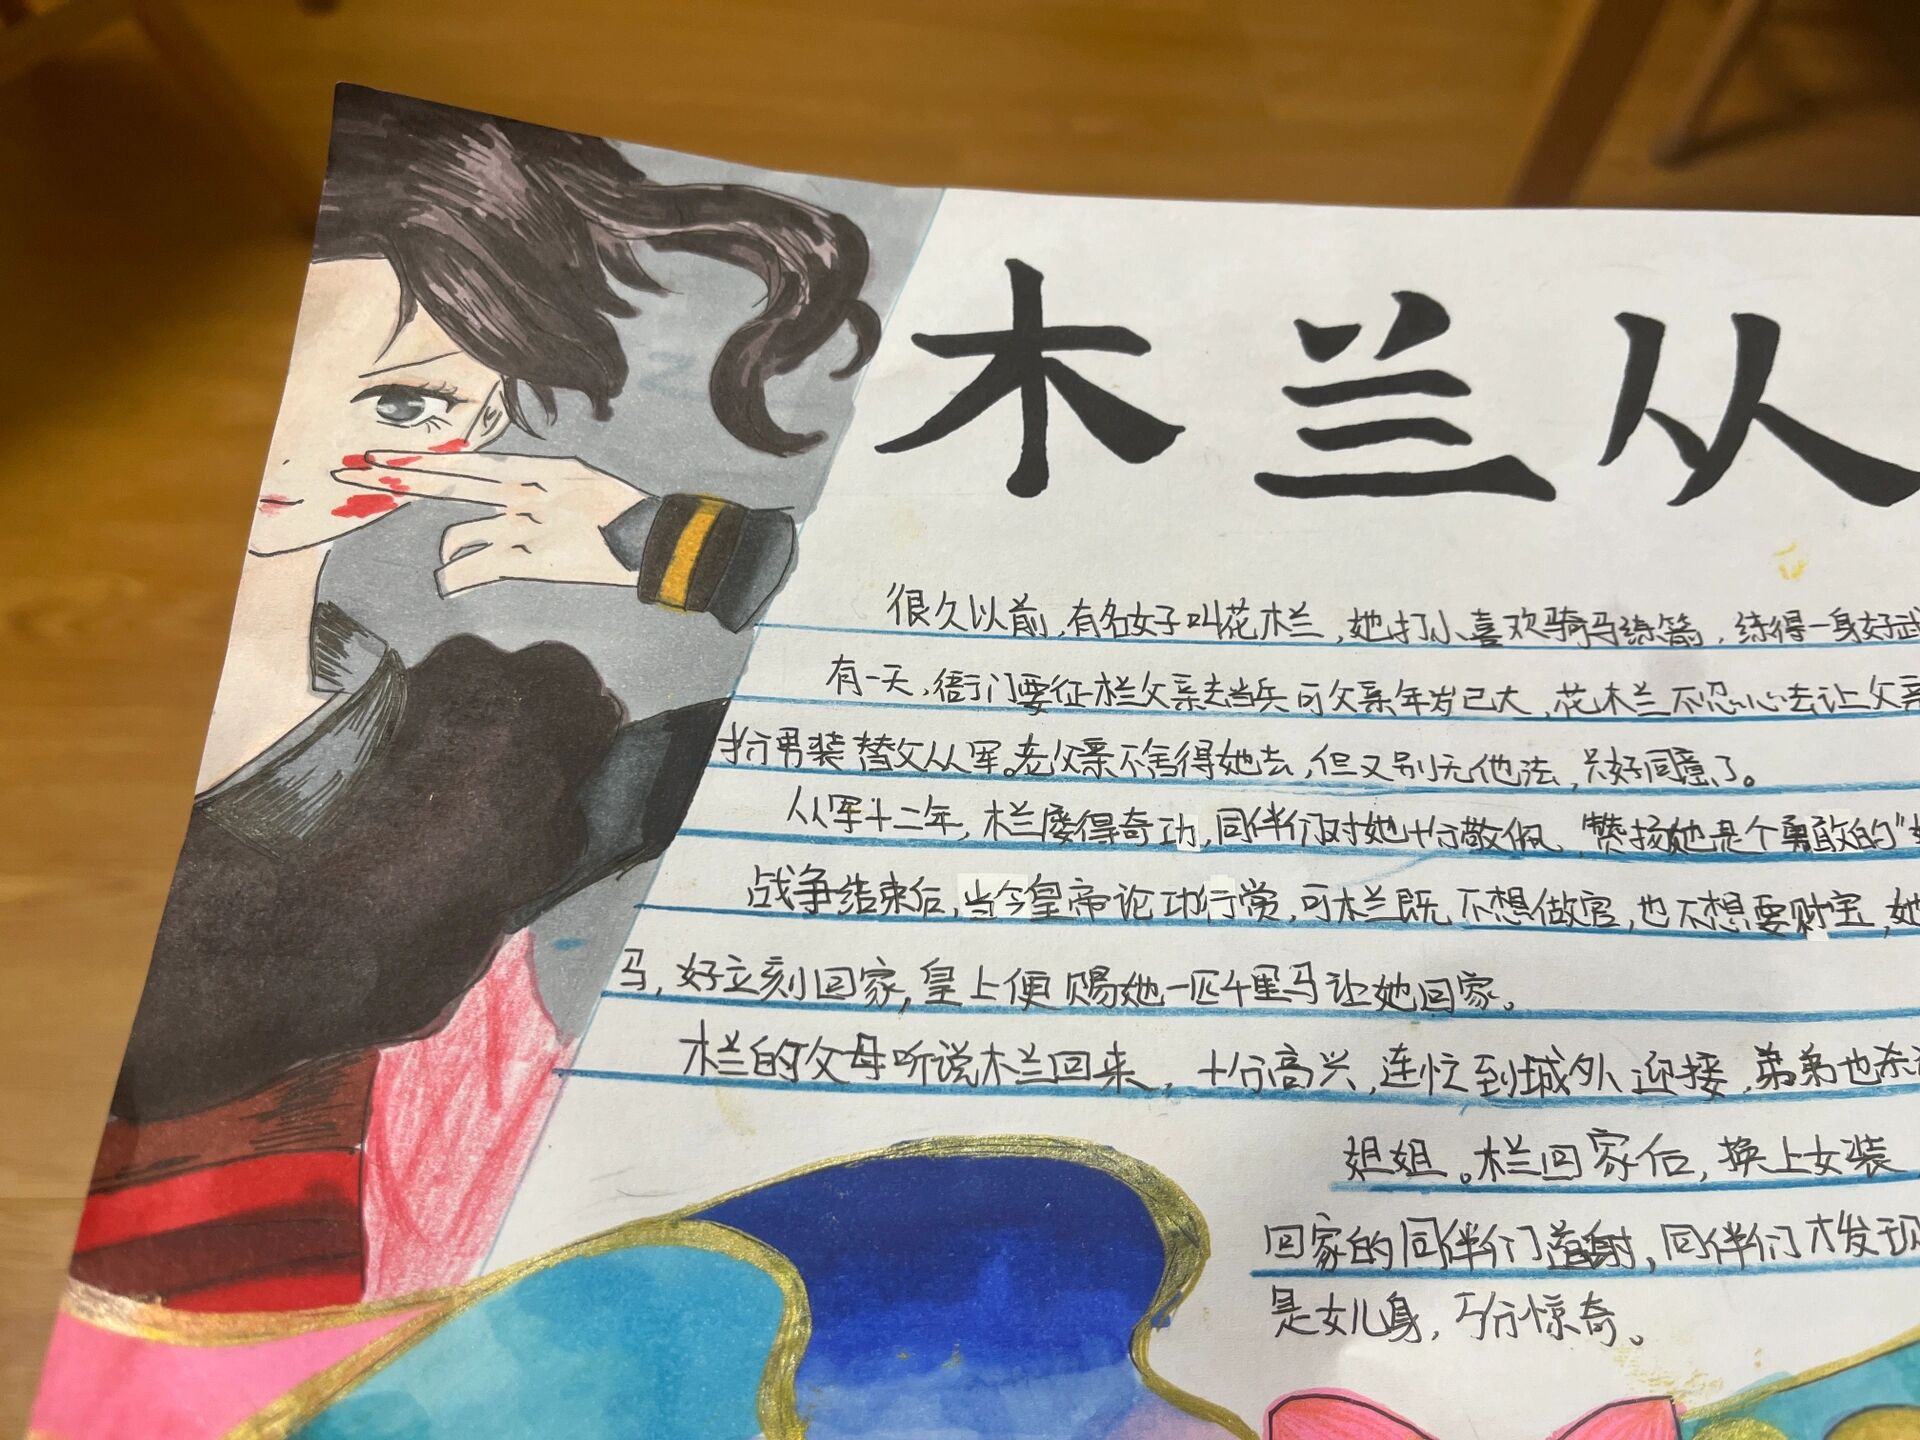 木兰从
很久以前,有名女子叫花木兰,她打小喜欢骑马练箭,练得一身好武
有一天,衙门要征木兰父亲去当兵可父亲年岁已大,花木兰不忍心去让父亲
扮男装替父从军。老父亲不舍得她去,但又别无他法,只好同意了。
从军十二年,木兰屡得奇功,同伴们对她十分敬佩,赞扬她是个勇敢的"
战争结束后,当今皇帝论功行赏,可木兰既不想做官,也不想要财宝,她
马,好立刻回家,皇上便赐她一匹千里马让她回家。
木兰的父母听说木兰回来,十分高兴,连忙到城外迎接,弟弟也杀
姐姐。木兰回家后,换上女装
回家的同伴们道谢,同伴们才发现
是女儿身,万分惊奇。